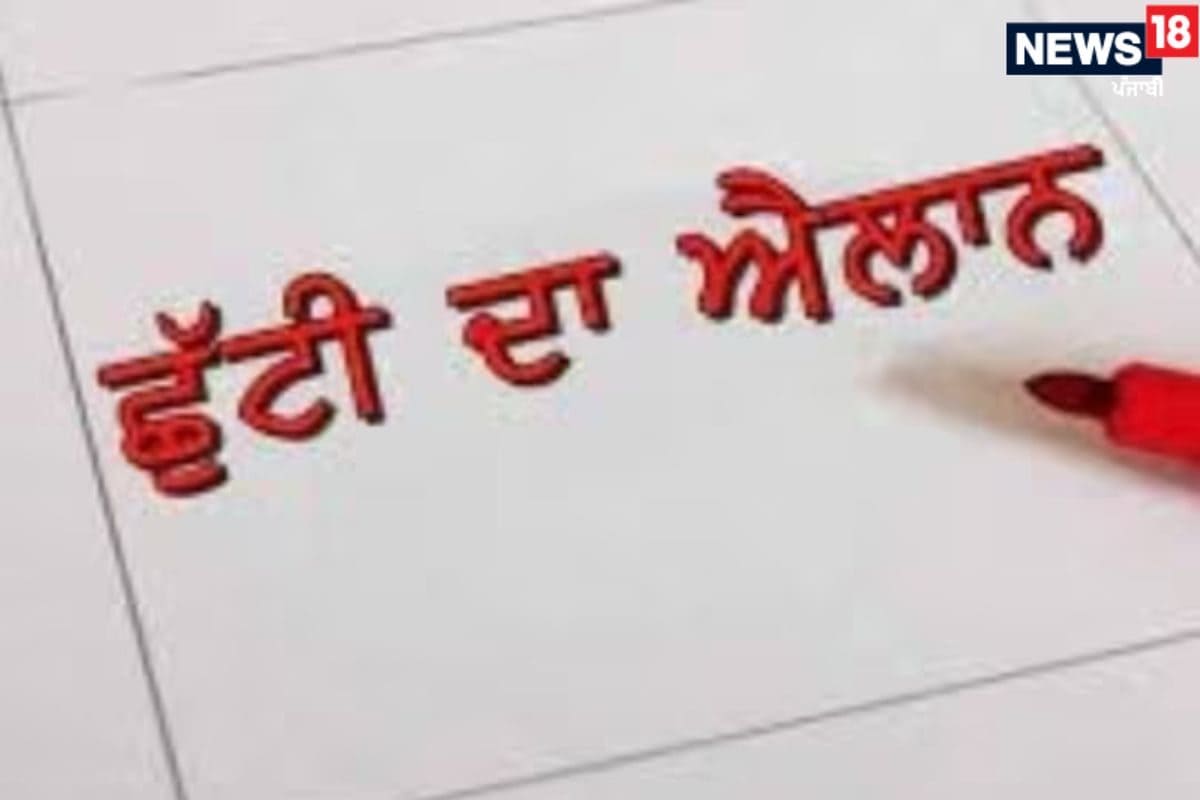 NEWS 18
ਪੰਜਾਬੀ
ਛੁੱਟੀ ਦਾ ਐਲਾਨ